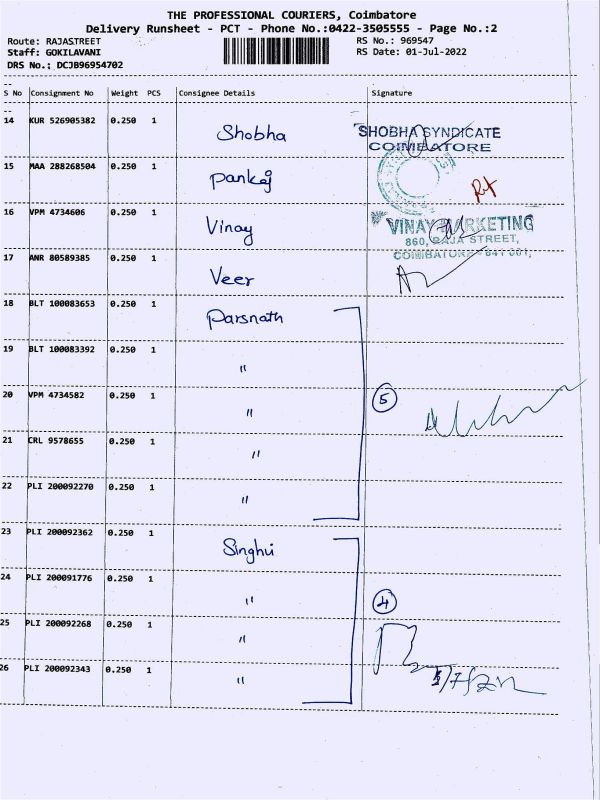 THE PROFESSIONAL COURIERS, Coimbatore
Delivery Runsheet - PCT - Phone No.:0422-3505555 - Page No.:2
Route: RAJASTREET RS No.: 969547
Staff: GOKILAVANI RS Date: 01-Jul-2022
DRS No.: DCJB96954702
S No Consignment No Weight PCS Consignee Details Signature
14 KUR 526905382 0.250 1 Shobha SHOBHA SYNDICATE
COIMBATORE
15 MAA 288268504 0.250 1 Pankaj
16 VPM 4734606 0.250 1 Vinay VINAY MARKETING
860, RAJA STREET,
COIMBATORE - 641 001,
17 ANR 80589385 0.250 1 Veer
18 BLT 100083653 0.250 1 Parsnath
19 BLT 100083392 0.250 1 "
20 VPM 4734582 0.250 1 " 5
21 CRL 9578655 0.250 1 "
22 PLI 200092270 0.250 1 "
23 PLI 200092362 0.250 1 Singhvi
24 PLI 200091776 0.250 1 " 4
25 PLI 200092268 0.250 1 "
26 PLI 200092343 0.250 1 "